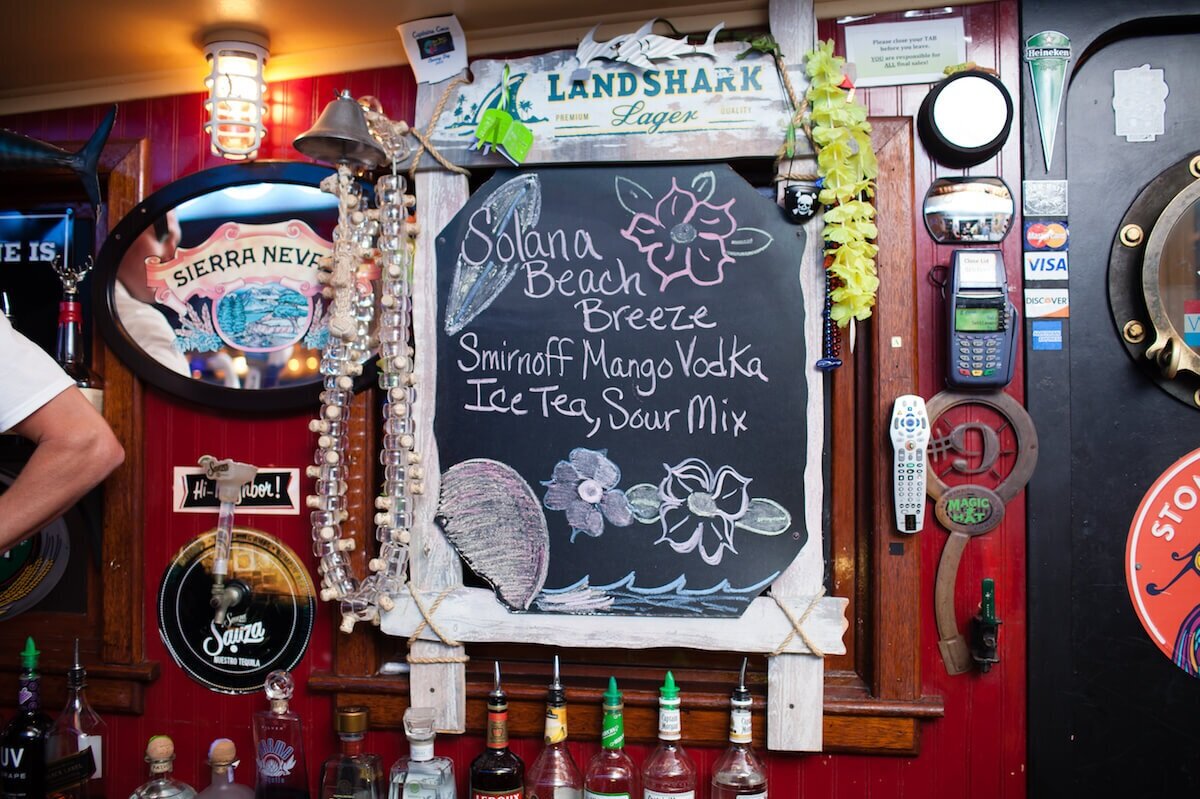 Please close your TAB
before you leave.
YOU are responsible for
ALL final sales!
Heineken
LANDSHARK
PREMIUM
Lager
QUALITY
Solana
Beach
Breeze
Smirnoff Mango Vodka
Ice Tea, Sour Mix
SIERRA NEV
NE IS
Hi-Neighbor!
Sauza
NUESTRO TEQUILA
MasterCard
VISA
DISCOVER
#9
MAGIC
HAT
STO
UV
LEROUX
Captain Morgan